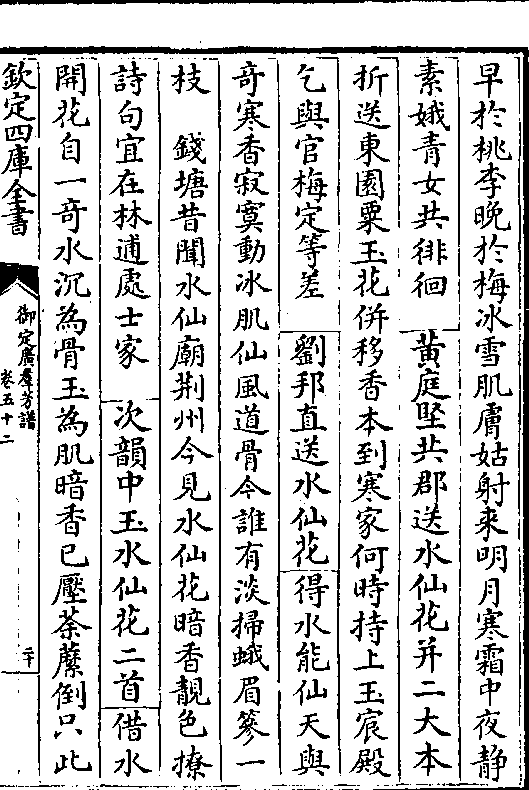 早於桃李晚於梅冰雪肌膚姑射來明月寒霜中夜靜
素娥青女共徘徊　黃庭堅共郡送水仙花并二大本
折送東園粟玉花併移香本到寒家何時持上玉宸殿
乞與官梅定等差　劉邦直送水仙花得水能仙天與
奇寒香寂寞動冰肌仙風道骨今誰有淡掃蛾眉篸一
枝　錢塘昔聞水仙廟荆州今見水仙花暗香靚色撩
詩句宜在林逋處士家　次韻中玉水仙花二首借水
開花自一奇水沉為骨玉為肌暗香已壓荼蘼倒只此
欽定四庫全書
御定廣羣芳譜
卷五十二
二十